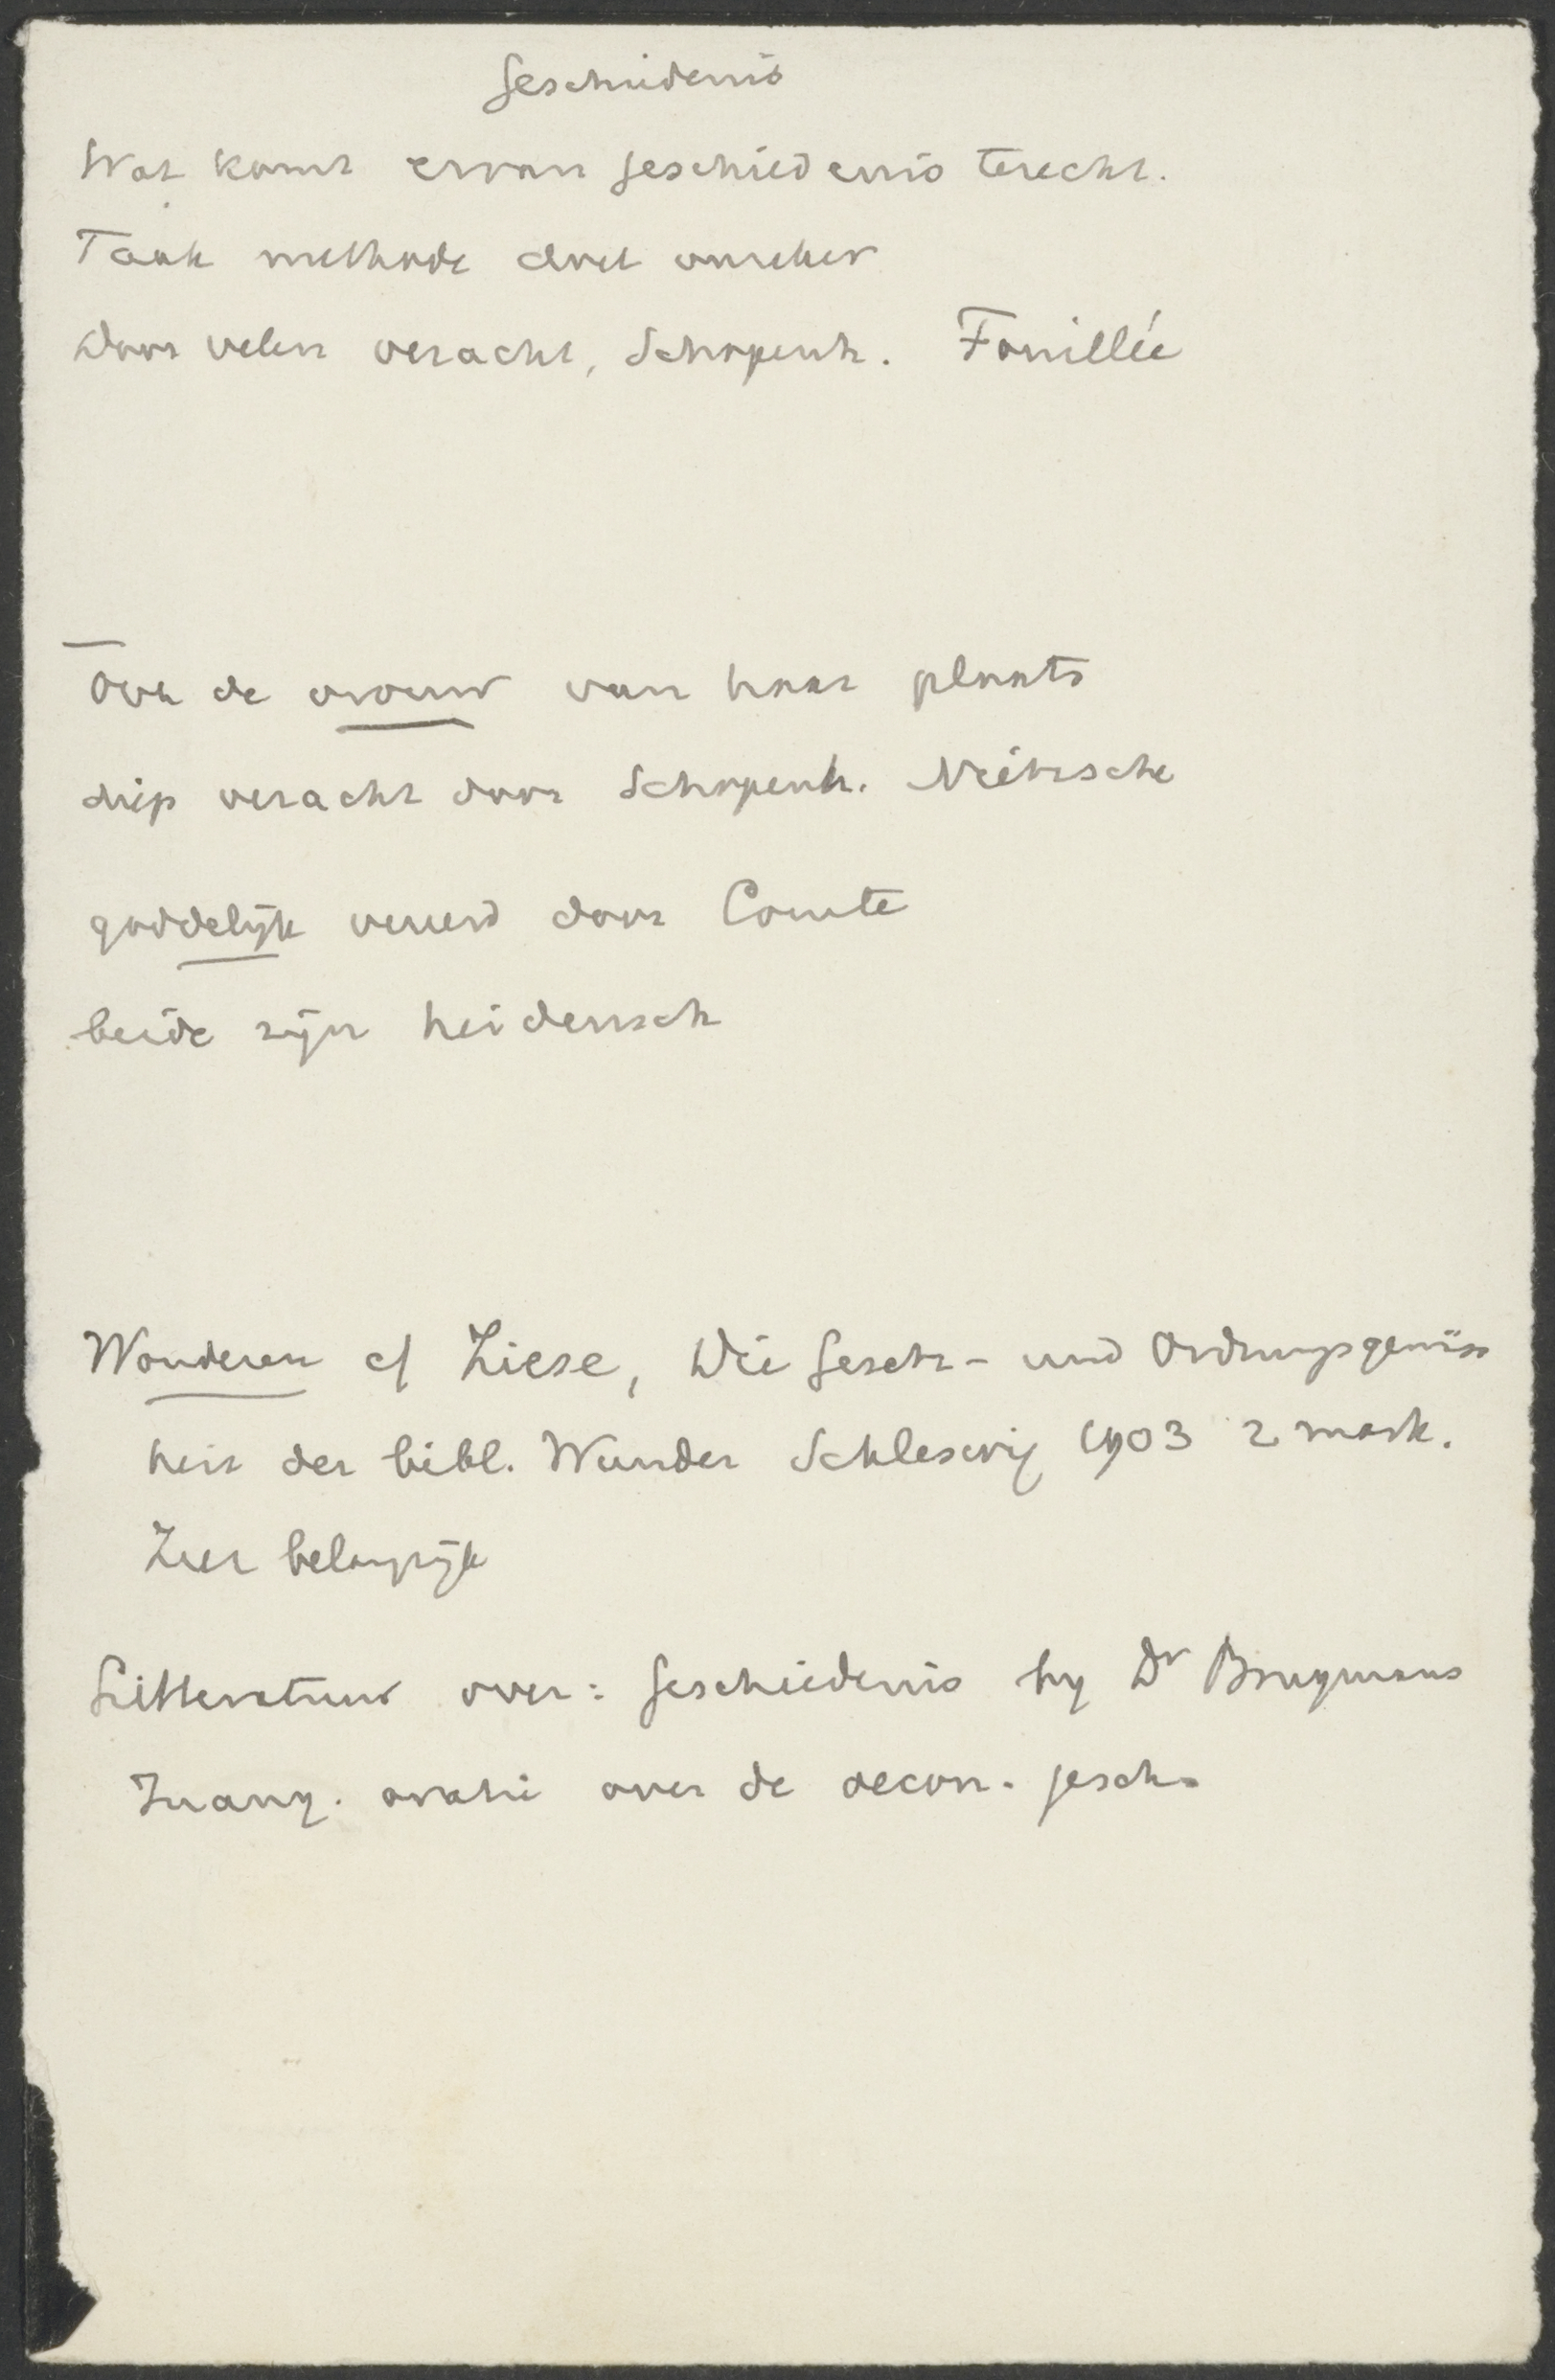 Geschiedenis
Wat komt ervan geschiedenis terecht.
Taak methode doel onzeker
Door velen veracht, Schopenh. Fouillée
Ook de vrouw van haar plaats
diep veracht door Schopenh. Nietzsche
goddelijk vereerd door Comte
beide zijn heidensch
Wonderen cf Ziese, Die Gesetz- und Ordnungsgemäss
heit der bibl. Wunder Schleswig 1903 2 mark.
Zeer belangrijk
Litteratuur over: geschiedenis by Dr Brugmans
Inaug. oratie over de oecon. gesch.